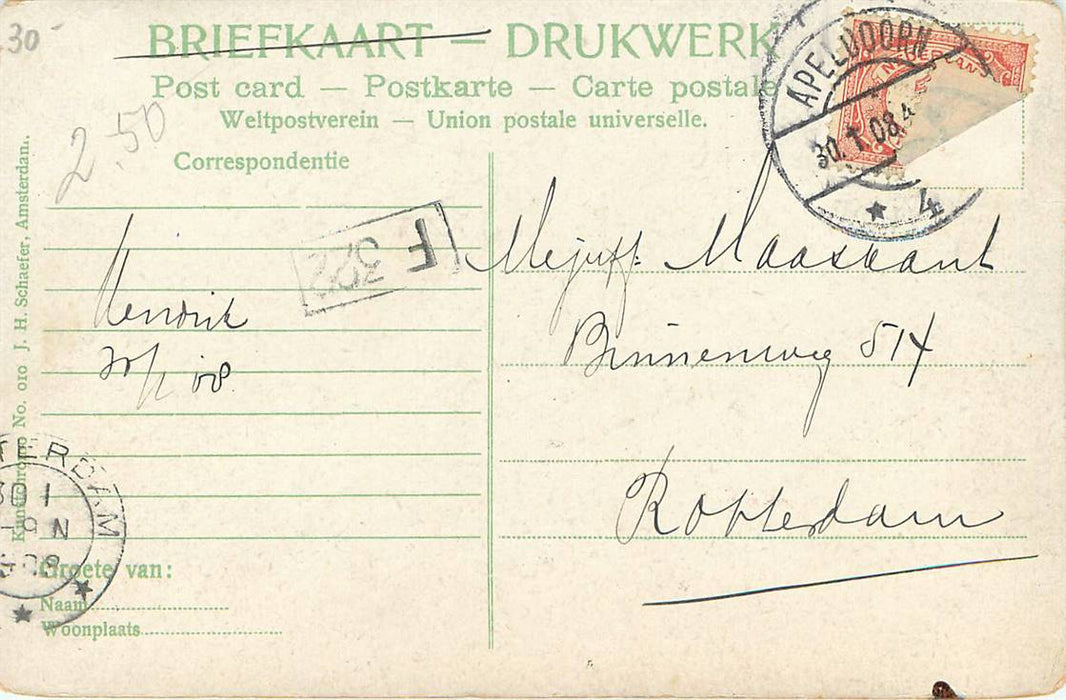 30-
BRIEFKAART — DRUKWERK
Post card — Postkarte — Carte postale
Weltpostverein — Union postale universelle.
2.50
Correspondentie
APELDOORN
30.1.08
4
NEDERLAND
F
Mejuff. Maaskant
Binnenweg 514
Rotterdam
Hendrik
30/1 08
Kunstchromo No. 010 J. H. Schaefer, Amsterdam.
TERDAM
30 1
8-9 N
08
Groete van:
Naam
Woonplaats